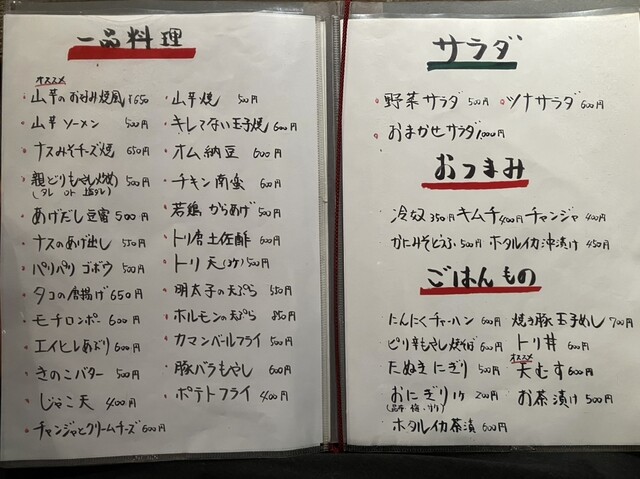 一品料理
オススメ
・山芋のお好み焼風 ¥650
・山芋ソーメン 500円
・ナスみそチーズ焼 650円
・親どりもやし炒め 500円
(タレ or 塩タレ)
・あげだし豆富 500円
・ナスのあげ出し 550円
・パリパリゴボウ 500円
・タコの唐揚げ 650円
・モチロンポー 600円
・エイヒレあぶり 600円
・きのこバター 500円
・じゃこ天 400円
・チャンジャとクリームチーズ 600円
・山芋焼 500円
・キレてない玉子焼 600円
・オム納豆 600円
・チキン南蛮 600円
・若鶏からあげ 500円
・トリ唐土佐酢 600円
・トリ天 500円
・明太子の天ぷら 550円
・ホルモンの天ぷら 850円
・カマンベールフライ 500円
・豚バラもやし 600円
・ポテトフライ 400円
サラダ
・野菜サラダ 500円 ・ツナサラダ 600円
・おまかせサラダ 1,000円
おつまみ
冷奴 350円 キムチ 400円 チャンジャ 400円
かにみそとうふ 500円 ホタルイカ沖漬け 450円
ごはんもの
にんにくチャーハン 600円 焼き豚玉子めし 700円
ピリ辛もやし焼そば 600円 トリ丼 600円
オススメ
たぬきにぎり 500円 天むす 600円
おにぎり1ケ 200円 お茶漬け 500円
ホタルイカ茶漬 600円